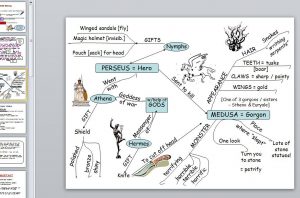 Winged sandals [fly]
Magic helmet [invisb.]
Pouch [sack] for head
GIFTS
Nymphs
PERSEUS = Hero
Went with
Athena
Goddess of war
GIFT
Shield
polished
bronze
shiny
GODS
Messenger of
Hermes
GIFT
Knife
To cut off head
Sent to kill
MEDUSA = Gorgon
APPEARANCE
HAIR
Snakes
writhing
serpents
TEETH = tusks
[boar]
CLAWS = sharp / pointy
WINGS = gold
[One of 3 gorgons / sisters
- Stheno & Euryale]
MONSTER
terrifying
terrible
horrible
horrific
Place
where
One look
Turn you
to stone
= petrify
Lots of
stone
statues!